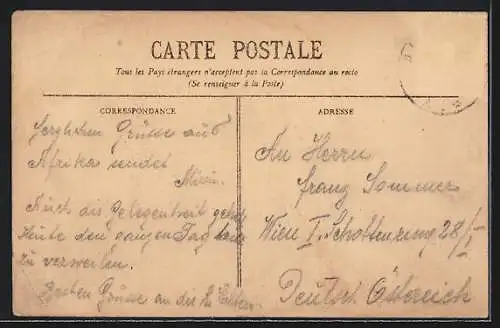 CARTE POSTALE
Tous les Pays étrangers n'acceptent pas la Correspondance au recto
(Se renseigner à la Poste)
CORRESPONDANCE
Herzlichen Grüsse aus
Afrika sendet
Auch die Gelegenheit
Heute den ganzen Tag
zu verweilen.
Besten Grüsse an die
ADRESSE
An Herrn
Franz Sommer
Wien I. Schottenring 28/I
Deutsch Östereich